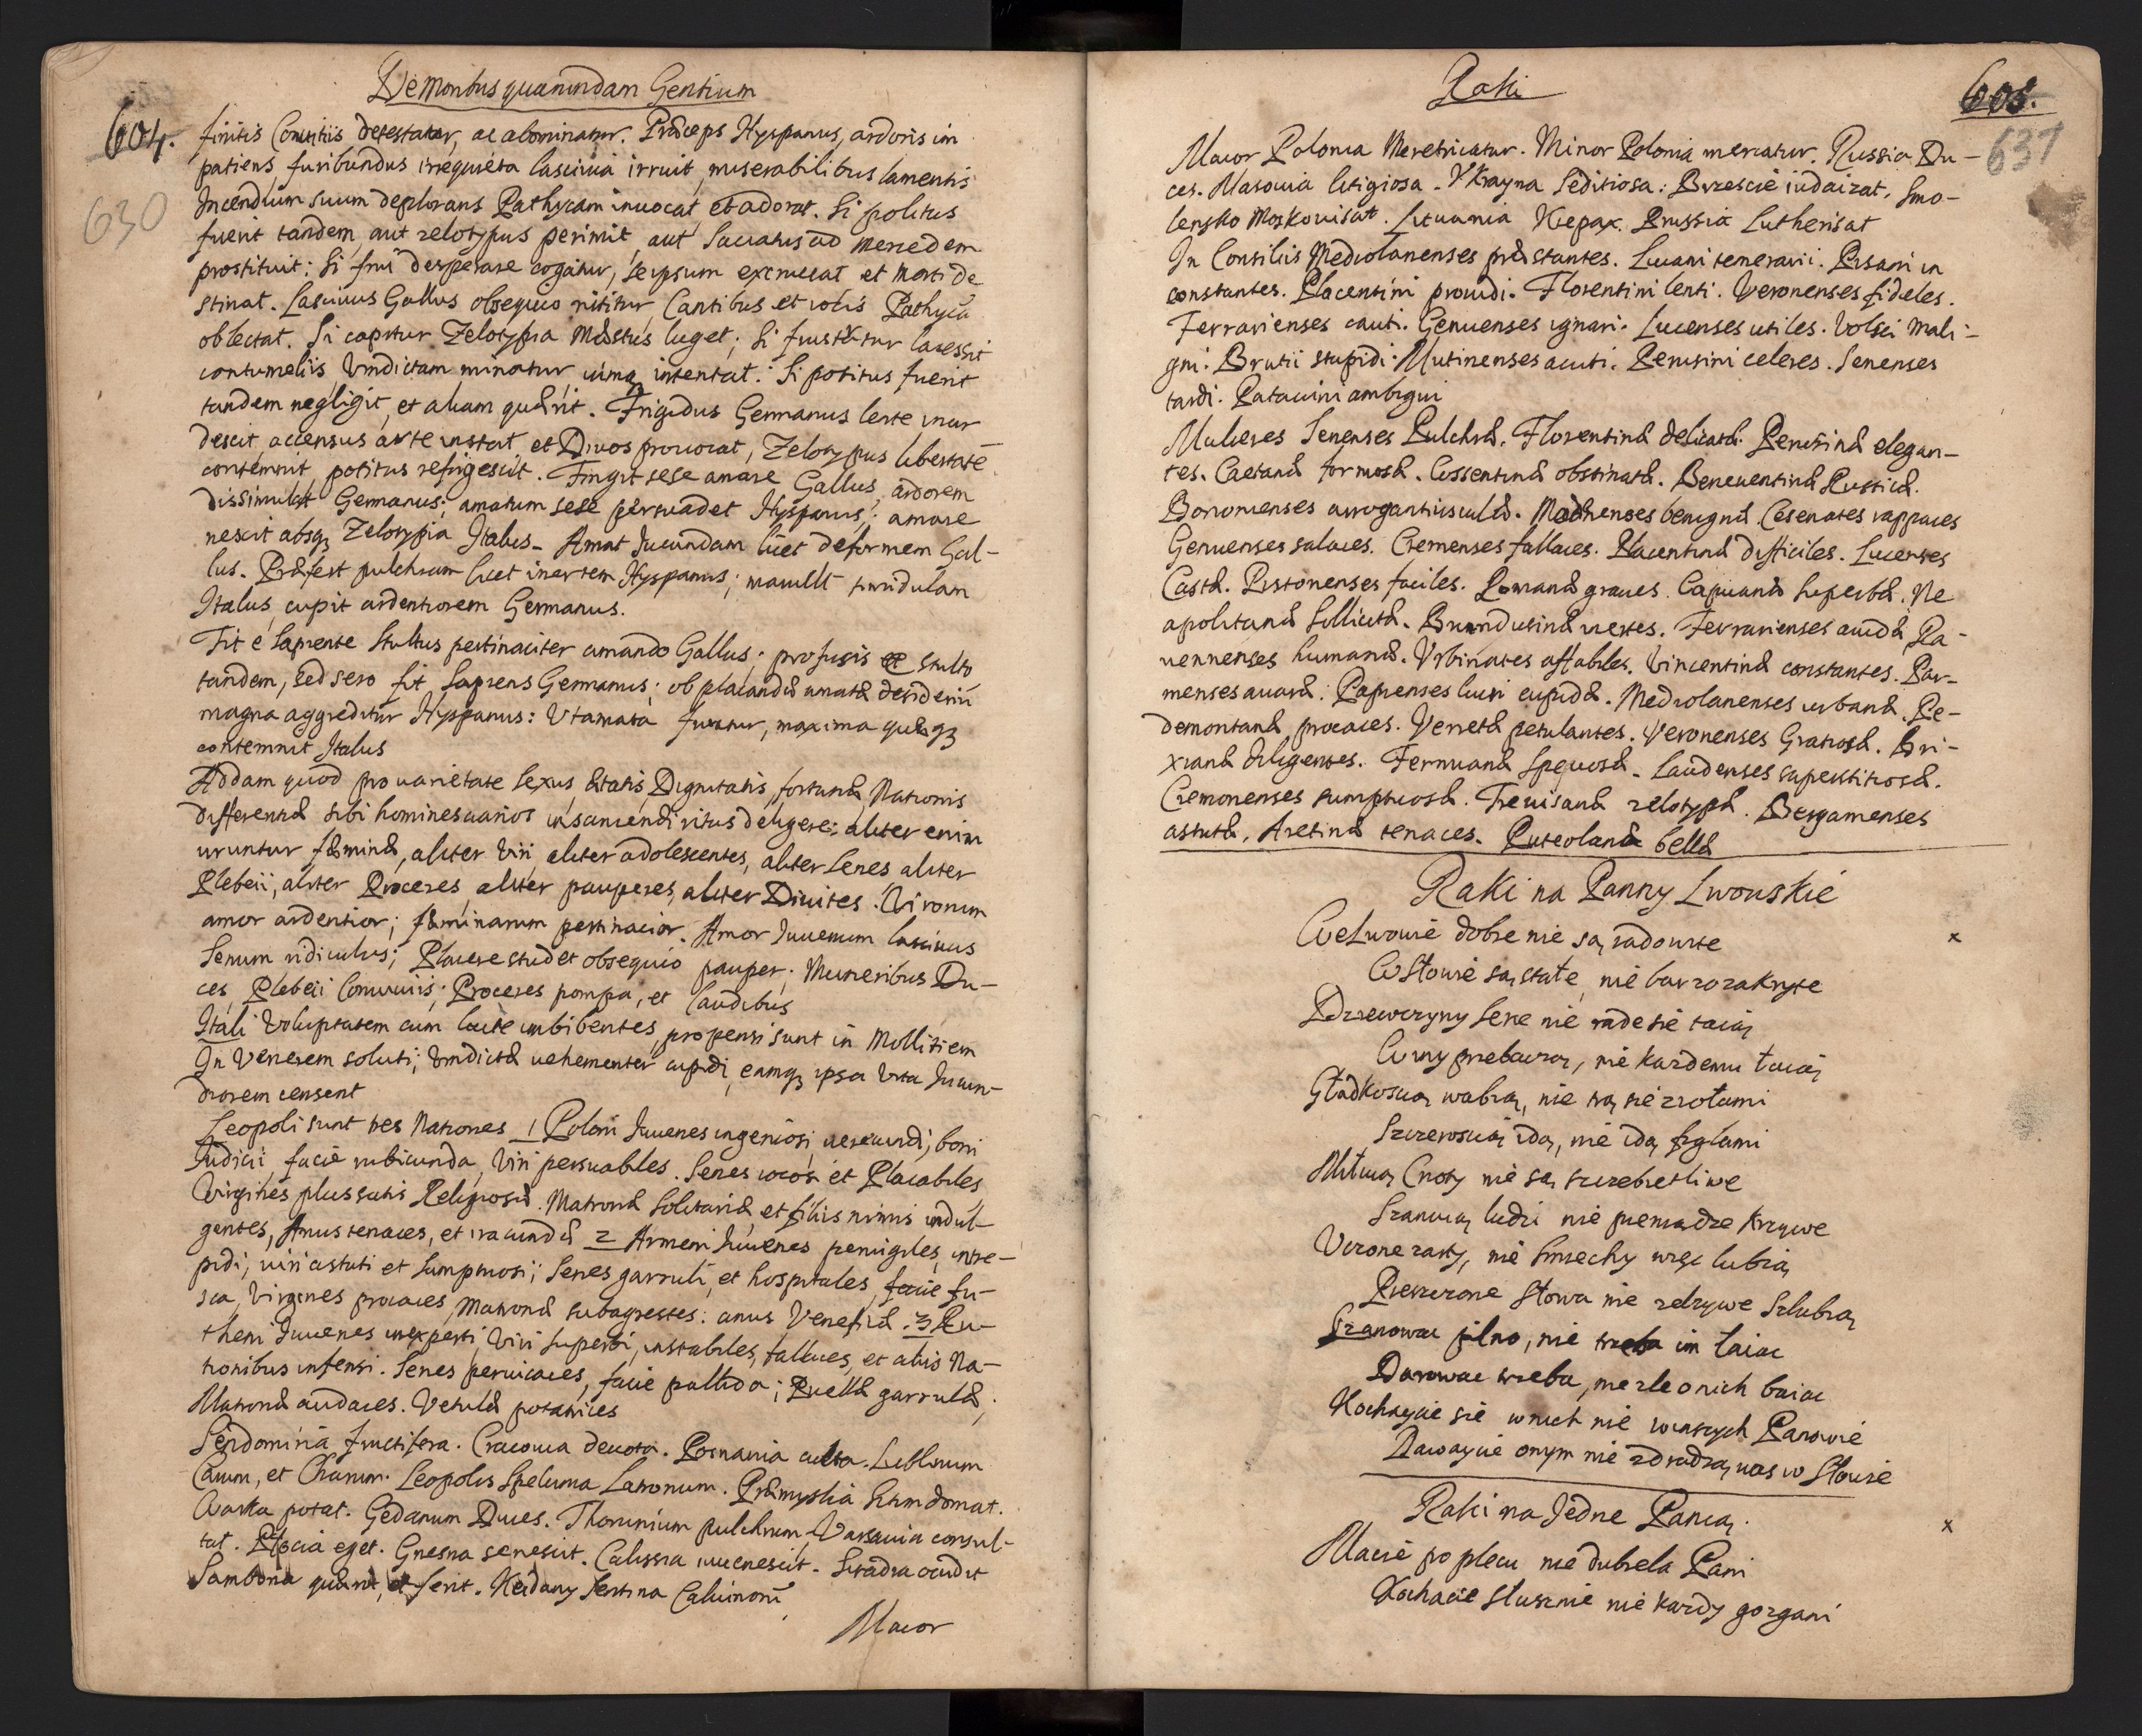 De Moribus quarundam Gentium
604.
630
finitis Comitiis detestatur, ac abominatur. Præceps Hyspanus, ardoris im
patiens, furibundus irrequieta lasciuia irruit, miserabilibus lamentis
Incendium suum deplorans Pathycam inuocat et adorat. Si politus
fuerit tandem, aut zelotypus perimit, aut Saciatus ad mercedem
prostituit: Si frui desperare cogatur, seipsum excruciat et Morti de
stinat. Lasciuus Gallus obsequio nititur, Cantibus et iocis Pathycã
oblectat. Si capitur Zelotypia Mæstus luget; Si frustratur lacessit
contumeliis, Vindictam minatur, uimq; intentat. Si potitus fuerit
tandem negligit, et aliam quærit. Frigidus Germanus lente inar
descit, accensus arte instat, et Diuos prouocat, Zelotypus libertate
contemnit, potitus refrigescit. Fingit sese amare Gallus, ardorem
dissimulat Germanus; amatum sese persuadet Hyspanus; amare
nescit absq; Zelotypia Italus. Amat Iucundam licet deformem Gal-
lus. Præfert pulchram licet inertem Hyspanus; mauult timidulam
Italus, cupit ardentiorem Germanus.
Fit e Sapiente Stultus pertinaciter amando Gallus; profusis stulto
tandem, sed sero fit Sapiens Germanus; ob placandæ amatæ desiderium
magna aggreditur Hyspanus: Vt amata fruatur, maxima quæq;
contemnit Italus
Addam quod pro uarietate Sexus, ætatis, Dignitatis, fortunæ, Nationis
differentiæ sibi homines uarios insaniendi ritus deligere; aliter enim
uruntur fæminæ, aliter Viri, aliter adolescentes, aliter Senes aliter
Plebeii, aliter Proceres, aliter pauperes, aliter Diuites. Virorum
amor ardentior; fæminarum pertinacior. Amor Iuuenum lasciuus
Senum ridiculus; Placere studet obsequio pauper; Muneribus Du-
ces, Plebeii Conuiuiis; Proceres pompa, et laudibus
Itali Voluptatem cum lacte imbibentes, propensi sunt in Mollitiem
In Venerem soluti; Vindictæ uehementer cupidi, eamq; ipsa Vita Iucun-
diorem censent
Leopoli sunt tres Nationes 1 Poloni Iuuenes ingeniosi, uerecundi, boni
Iudicii, facie rubicunda, Viri persuabiles. Senes iocosi et Placabiles
Virgines plus satis Religiosæ. Matronæ Solitariæ, et filiis nimis indul-
gentes, Anus tenaces, et iracundæ 2 Armeni Iuuenes peruigiles, intre-
pidi, uiri astuti et Sumptuosi; Senes garruli, et hospitales, facie fu-
sca, Virgines procaces, Matronæ subagrestes: anus Veneficæ. 3 Ru-
theni Iuuenes inexperti, Viri Superbi, instabiles, fallaces, et aliis Na-
tionibus infensi. Senes peruicaces, facie pallida; Puellæ garrulæ,
Matronæ audaces. Vetulæ potatrices
Sendomiria fructifera. Cracouia deuota. Posnania culta. Lublinum
Carum, et Charum. Leopolis Spelunca Latronum. Præmyslia Sitim domat.
Warka potat. Gedanum Duces. Thorunium pulchrum, Varsauia consul-
tat. Plocia eget. Gnesna senescit. Calissia iuuenescit. Siradia occidit
Samboria quærit, et ferit. Keidany Sentina Caluinorũ
Maior
Raki
605.
631
Maior Polonia Meretricatur. Minor Polonia mercatur. Russia Du-
ces. Masouia litigiosa. Vkrayna Seditiosa: Brzescie iudaizat, Smo-
lensko Moskouisat. Lituania Nepax. Prussia Lutherisat
In Consiliis Mediolanenses præstantes. Lucani temerarii. Pisani in
constantes. Placentini prouidi. Florentini lenti. Veronenses fideles.
Ferrarienses cauti. Genuenses ignari. Lucenses utiles. Volsci Mali-
gni. Brutii stupidi. Mutinenses acuti. Perusini celeres. Senenses
tardi. Patauini ambigui
Mulieres Senenses Pulchræ. Florentinæ delicatæ. Perusinæ elegan-
tes. Caetanæ formosæ. Cossentinæ obstinatæ. Beneuentinæ Rusticæ.
Bononienses arrogantiusculæ. Modnenses benignæ. Cesenates rappaces
Genuenses salaces. Cremenses fallaces. Placentinæ difficiles. Lucenses
Castæ. Pistonenses faciles. Romanæ graues. Capuanæ Superbæ. Ne
apolitanæ Sollicitæ. Brundusinæ inertes. Ferrarienses auidæ, Ra-
uennenses humanæ. Vrbinates affabiles. Vincentinæ constantes. Par-
menses auaræ. Papienses lucri cupidæ. Mediolanenses urbanæ. Pe-
demontanæ procaces. Venetæ petulantes. Veronenses Gratiosæ. Bri-
xianæ diligentes. Fermanæ Speciosæ. Laudenses superstitiosæ.
Cremonenses sumptuosæ. Treuisanæ zelotypæ. Bergamenses
astutæ. Aretinæ tenaces. Puteolanæ bellæ
Raki na Panny Lwouskie
We Lwowie dobre nie są zadowite x
W Słowie są state, nie barzo zakryte
Dziewczyny Serc nie rade sie taią
Winy przebaczą, nie każdemu łaią
Gładkoscią wabią, nie są sie ziołami
Szczeroscią idą, nie idą figlami
Miłuią Cnoty nie są szczebietliwe
Szanuią ludzi nie pieniądze krzywe
Vczone zarty, nie smiechy więc lubią
Pieszczone słowa nie zelzywe Szlubią
Szanowac pilno, nie trzeba im łaiac
Darowac trzeba, nie zle o nich baiac
Kochaycie sie w nich nie w inszych Panowie
Dawaycie onym nie zdradzą was w Słowie
Raki na Jedne Panią. x
Macie po plecu nie dubiela Pani
Kochacie słusznie nie kazdy gorgani